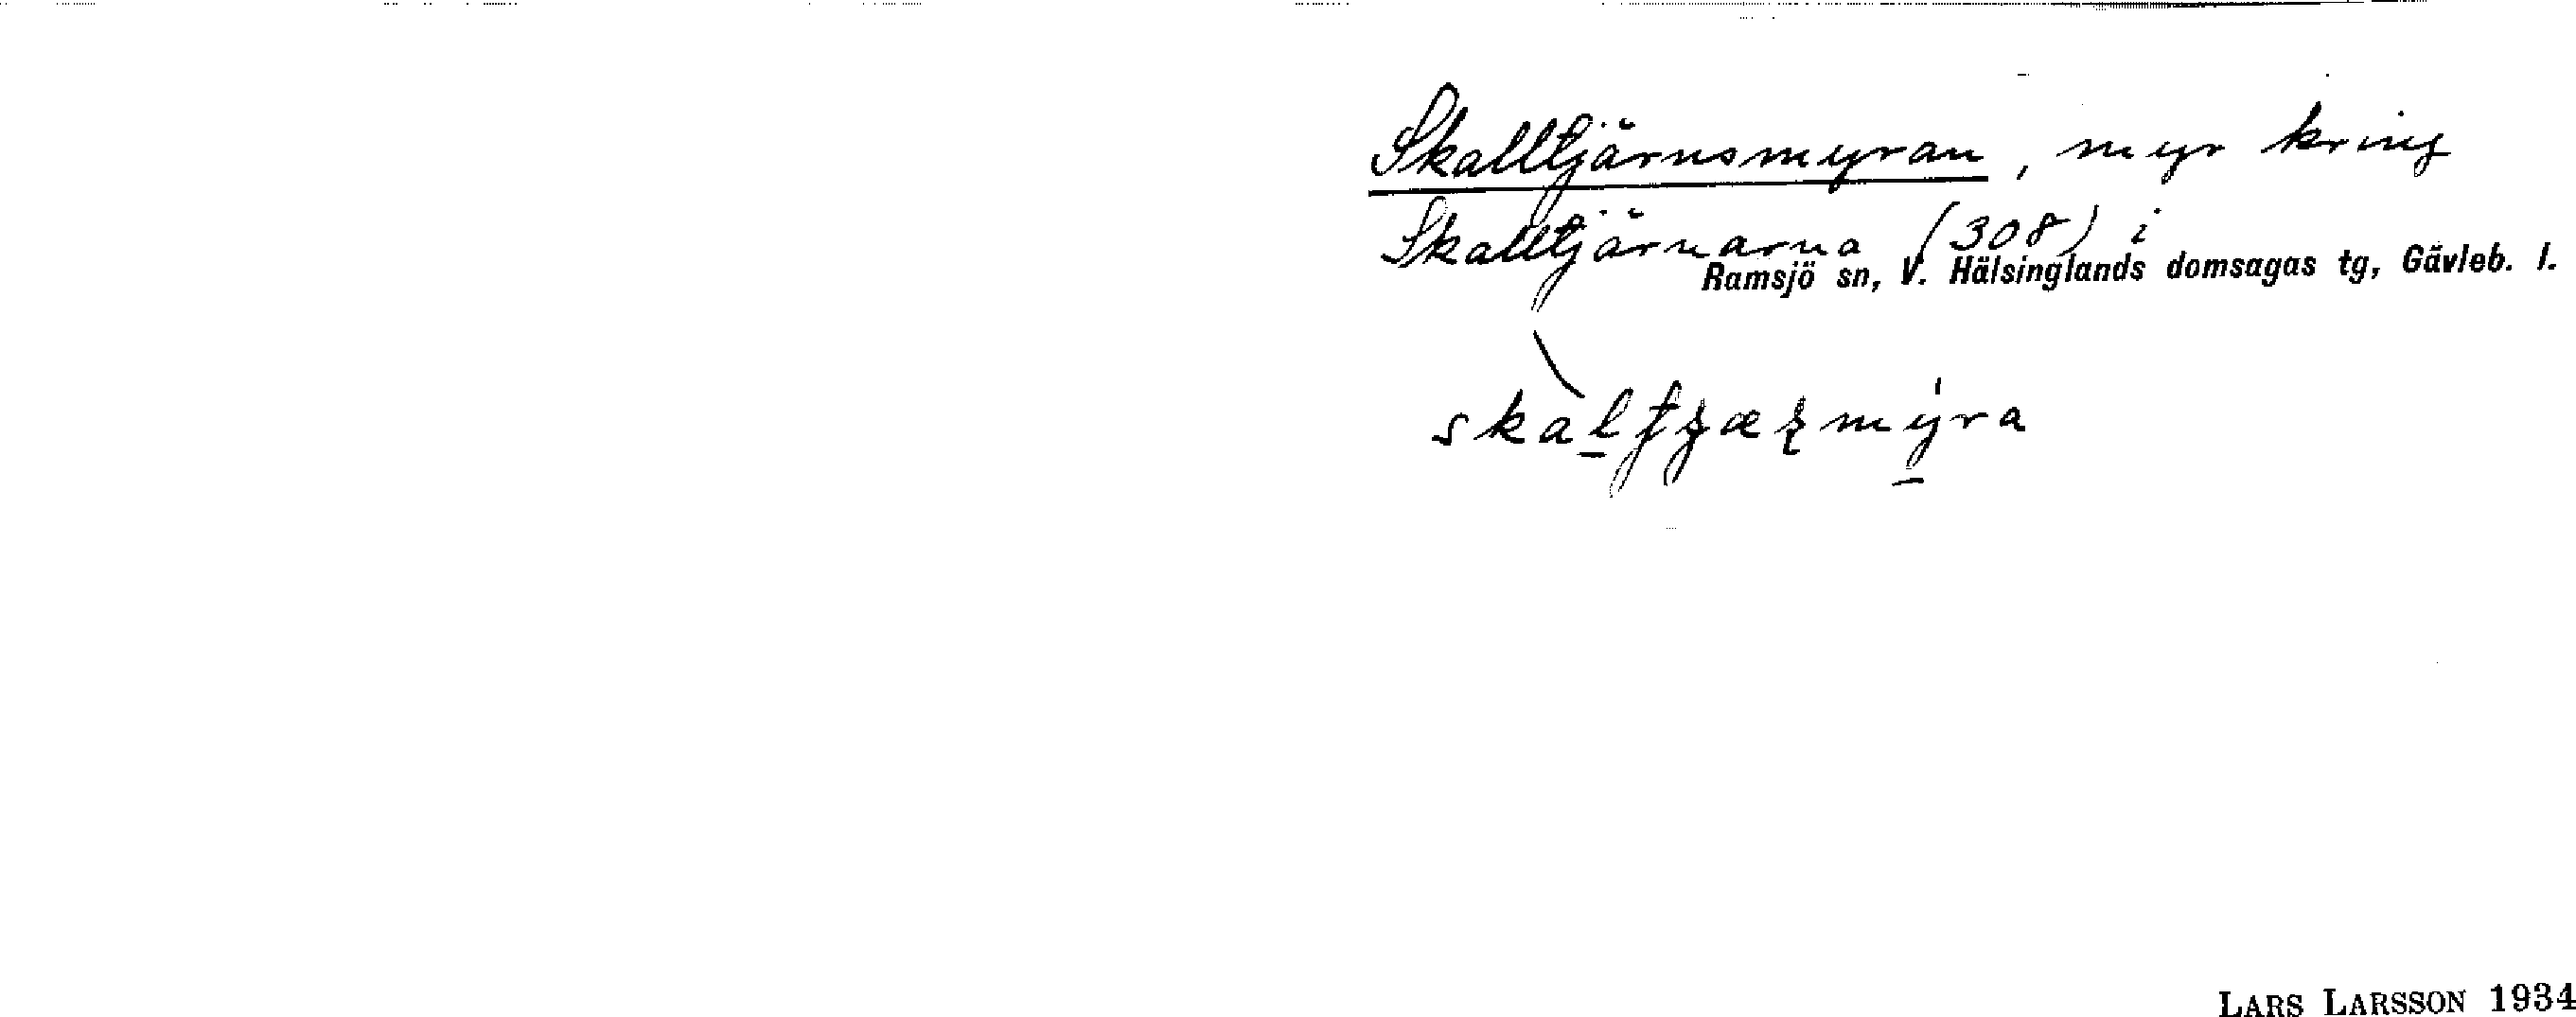 Skalltjärnsmyran, myr kring
Skalltjärnarna (308) i
Ramsjö sn, V. Hälsinglands domsagas tg, Gävleb. l.
LARS LARSSON 1934